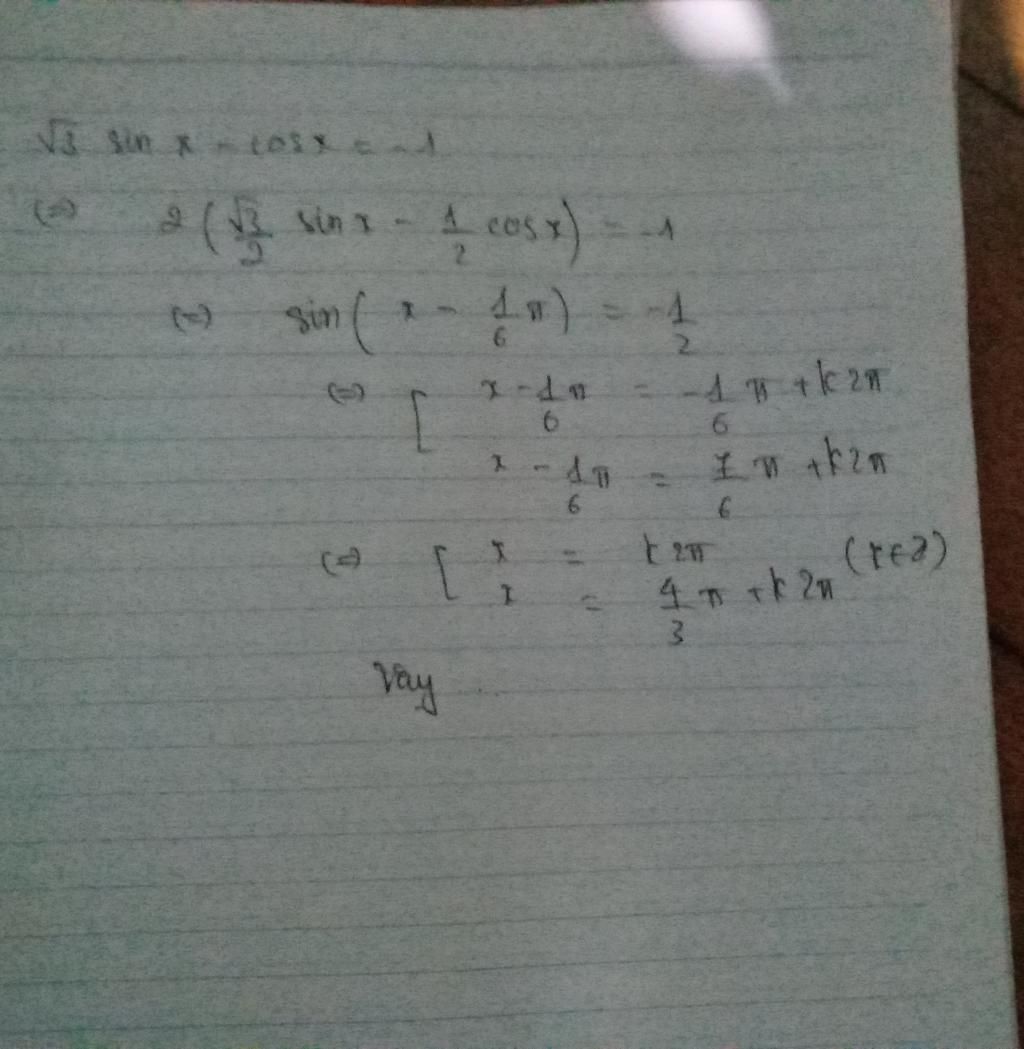 √3 sin x - cosx = -1
(=) 2(√3/2 sin x - 1/2 cosx) = -1
(=) sin( x - 1/6 π) = -1/2
(=) [ x - 1/6 π = -1/6 π + k2π
x - 1/6 π = 7/6 π + k2π
(=) [ x = k2π (k∈Z)
x = 4/3 π + k2π
Vay ...